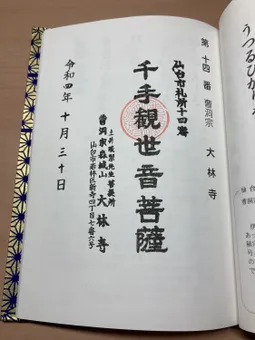 うつるひか
第十四番 曹洞宗 大林寺
仙台市札所十四番
千手觀世音菩薩
土井晩翠先生菩提所
曹洞宗森城山 大林寺
仙台市若林区新寺四丁目七番六号
令和四年十月三十日